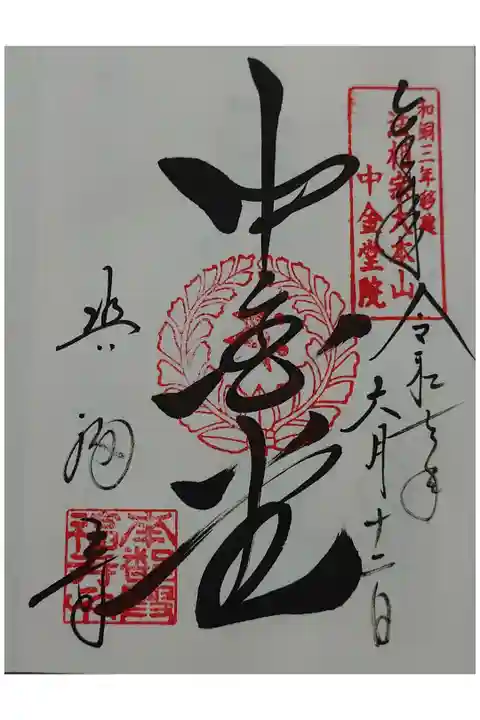 和銅三年
法相宗大本山
中金堂院
令和七年
六月十二日
中金堂
興福寺